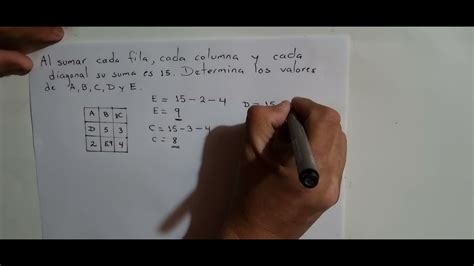 Al sumar cada fila, cada columna y cada
diagonal su suma es 15. Determina los valores
de A, B, C, D y E.
E = 15 - 2 - 4
E = 9
C = 15 - 3 - 4
C = 8
D = 15
A B C
D 5 3
2 E 4